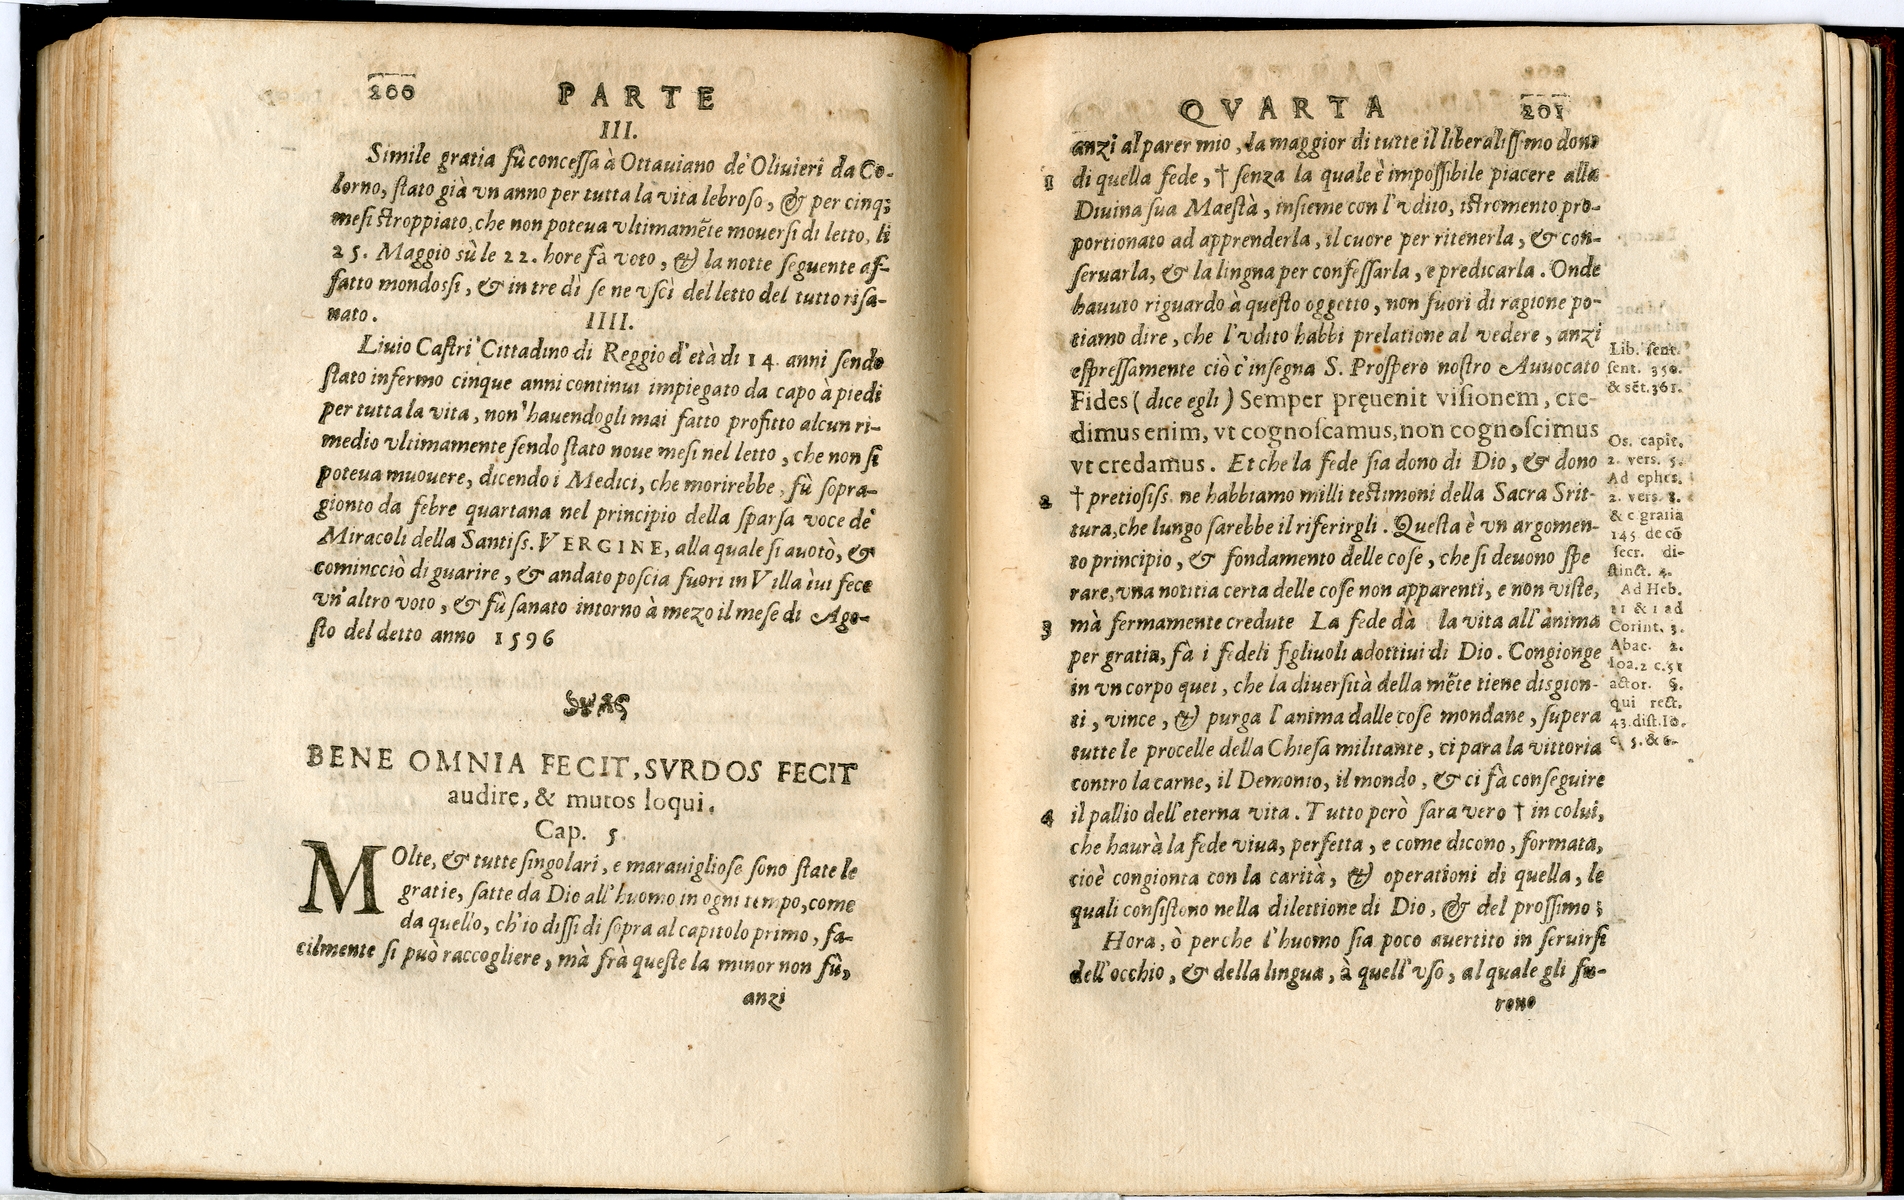 200 PARTE
III.
Simile gratia fù concessa à Ottauiano de' Oliuieri da Co-
lorno, stato già vn anno per tutta la vita lebroso, & per cinq;
mesi stroppiato, che non poteua vltimamẽte mouersi di letto, li
25. Maggio sù le 22. hore fà voto, & la notte seguente af-
fatto mondossi, & in tre dì se ne vscì del letto del tutto risa-
nato.
IIII.
Liuio Castri Cittadino di Reggio d'età di 14. anni sendo
stato infermo cinque anni continui impiegato da capo à piedi
per tutta la vita, non hauendogli mai fatto profitto alcun ri-
medio vltimamente sendo stato noue mesi nel letto, che non si
poteua muouere, dicendo i Medici, che morirebbe, fù sopra-
gionto da febre quartana nel principio della sparsa voce de'
Miracoli della Santiss. VERGINE, alla quale si auotò, &
comincciò di guarire, & andato poscia fuori in Villa iui fece
vn'altro voto, & fù sanato intorno à mezo il mese di Ago-
sto del detto anno 1596
BENE OMNIA FECIT, SVRDOS FECIT
audire, & mutos loqui.
Cap. 5.
MOlte, & tutte singolari, e marauigliose sono state le
gratie, fatte da Dio all'huomo in ogni tempo, come
da quello, ch'io dissi di sopra al capitolo primo, fa-
cilmente si può raccogliere, mà frà queste la minor non fù,
anzi
QVARTA 201
anzi al parer mio, la maggior di tutte il liberalissimo dono
1 di quella fede, † senza la quale è impossibile piacere alla
Diuina sua Maestà, insieme con l'vdito, istromento pro-
portionato ad apprenderla, il cuore per ritenerla, & con-
seruarla, & la lingna per confessarla, e predicarla. Onde
hauuto riguardo à questo oggetto, non fuori di ragione po-
tiamo dire, che l'vdito habbi prelatione al vedere, anzi
espressamente ciò c'insegna S. Prospero nostro Auuocato
Fides (dice egli) Semper pręuenit visionem, cre-
dimus enim, vt cognoscamus, non cognoscimus
vt credamus. Et che la fede sia dono di Dio, & dono
2 † pretiosiss. ne habbiamo milli testimoni della Sacra Srit-
tura, che lungo sarebbe il riferirgli. Questa è vn argomen-
to principio, & fondamento delle cose, che si deuono spe
rare, vna notitia certa delle cose non apparenti, e non viste,
3 mà fermamente credute La fede dà la vita all'anima
per gratia, fà i fedeli figliuoli adottiui di Dio. Congionge
in vn corpo quei, che la diuersità della mẽte tiene disgion-
ti, vince, & purga l'anima dalle cose mondane, supera
tutte le procelle della Chiesa militante, ci para la vittoria
contro la carne, il Demonio, il mondo, & ci fà conseguire
4 il pallio dell'eterna vita. Tutto però sara vero † in colui,
che haurà la fede viua, perfetta, e come dicono, formata,
cioè congionta con la carità, & operationi di quella, le
quali consistono nella dilettione di Dio, & del prossimo;
Hora, ò perche l'huomo sia poco auertito in seruirsi
dell'occhio, & della lingua, à quell'vso, al quale gli fu-
rono
Lib. sent.
sent. 350.
& sẽt. 361.
Os. capit.
2. vers. 5.
Ad ephes.
2. vers. 8.
& c gratia
145. de cõ
secr. di-
stinct. 4.
Ad Heb.
11 & 1 ad
Corint. 3.
Abac. 2.
Ioa. 2 c. 51
actor. §.
qui rect.
43. dist. Io.
c. 5. & 6.